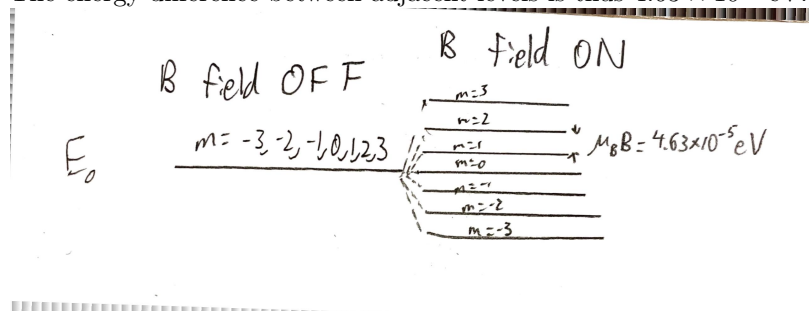 B field OFF
B field ON
E₀
m = -3, -2, -1, 0, 1, 2, 3
m=3
m=2
m=1
m=0
m=-1
m=-2
m=-3
μ_B B = 4.63×10⁻⁵ eV